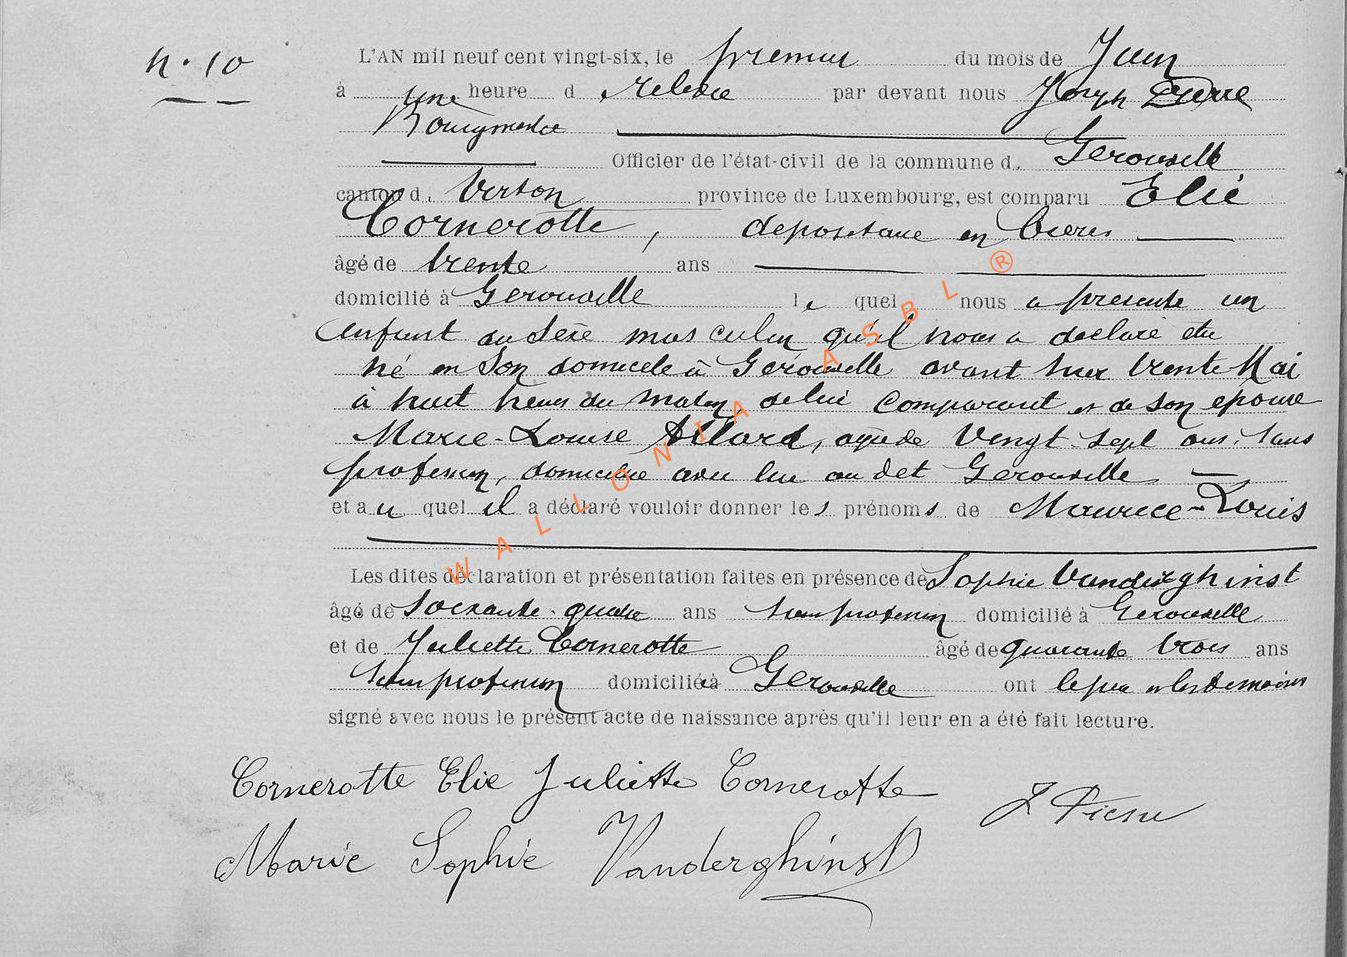 N. 10
L'AN mil neuf cent vingt-six, le premier du mois de Juin
à une heure d relevée par devant nous Joseph Pierre
Bourgmestre
Officier de l'état-civil de la commune d. Gerouville
canton d. Virton province de Luxembourg, est comparu Elie
Cornerotte, dépositaire en bières
âgé de trente ans
domicilié à Gerouville le quel nous a présenté un
enfant du sexe masculin qu'il nous a déclaré être
né en son domicile à Gérouville avant hier trente Mai
à huit heures du matin, de lui comparant et de son épouse
Marie-Louise Allard, agée de Vingt-sept ans, sans
profession, domiciliée avec lui au dit Gerouville
et au quel il a déclaré vouloir donner les prénoms de Maurice-Louis
Les dites déclaration et présentation faites en présence de Sophie Vanderghinst
âgé de soixante-quatre ans sans profession domicilié à Gerouville
et de Juliette Cornerotte âgé de quarante trois ans
sans profession domiciliée à Gerouville ont le père et les témoins
signé avec nous le présent acte de naissance après qu'il leur en a été fait lecture.
Cornerotte Elie Juliette Cornerotte
J Pierre
Marie Sophie Vanderghinst
WALLONIA ASBL ®